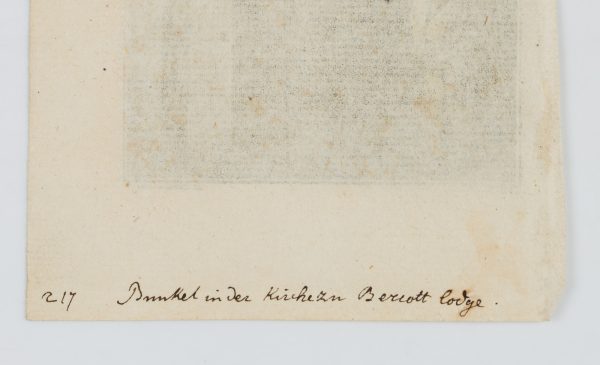 217 Bunkel in der Kirche zu Bercott lodge.